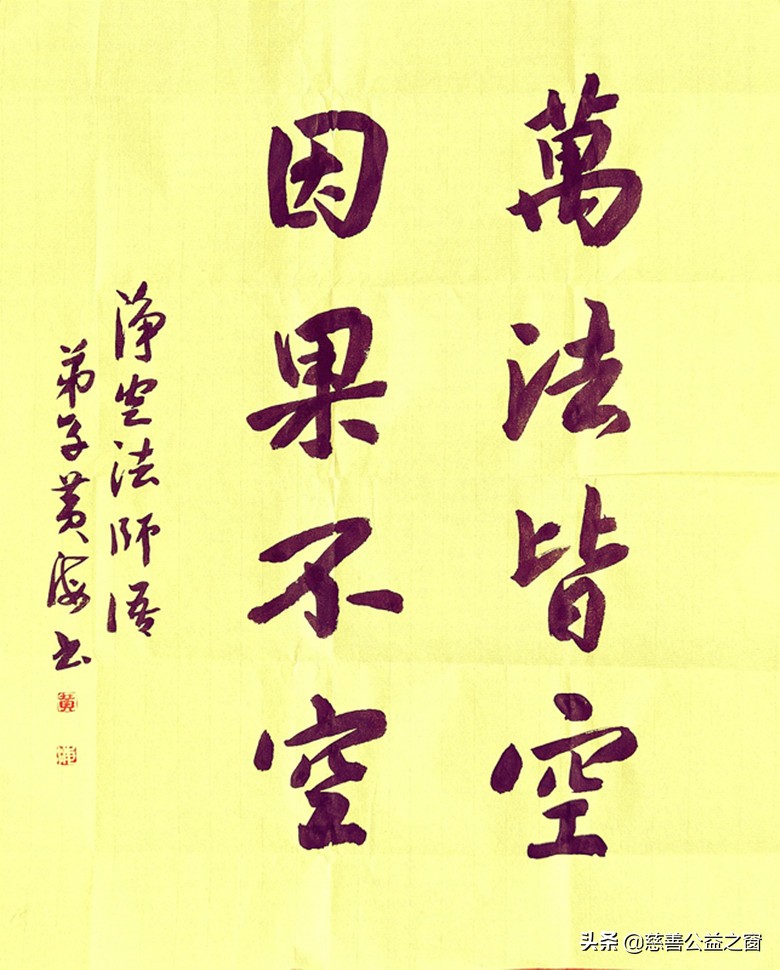 萬法皆空
因果不空
淨空法師語
弟子黄海书
黃
头条 @慈善公益之窗